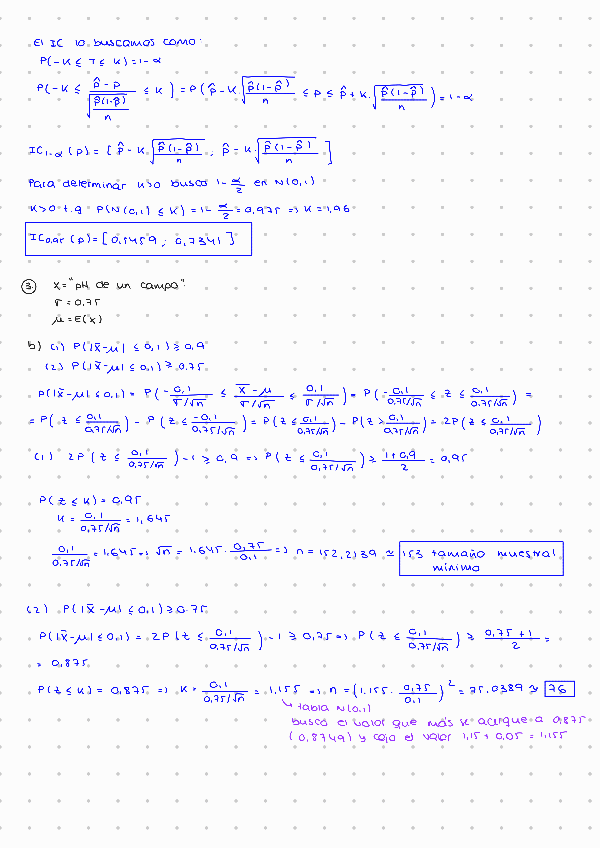 El IC lo buscamos como:
P(-K ≤ T ≤ K) = 1-α
P(-K ≤ (p̂ - p)/√(p̂(1-p̂)/n) ≤ K) = P(p̂ - K·√(p̂(1-p̂)/n) ≤ p ≤ p̂ + K·√(p̂(1-p̂)/n)) = 1-α
IC1-α (p) = [p̂ - K·√(p̂(1-p̂)/n) ; p̂ - K·√(p̂(1-p̂)/n)]
Para determinar K>0 busco 1-α/2 en N(0,1)
K>0 t.q P(N(0,1) ≤ K) = 1-α/2 = 0,975 => K = 1,96
IC0,95 (p) = [0,5459 ; 0,7341]
③ X = "pH de un campo".
σ = 0,75
μ = E(X)
b) (1) P(|X̄-μ| ≤ 0,1) ≥ 0,9
(2) P(|X̄-μ| ≤ 0,1) ≥ 0.75
P(|X̄-μ| ≤ 0,1) = P(-0,1/(σ/√n) ≤ (X̄-μ)/(σ/√n) ≤ 0,1/(σ/√n)) = P(-0,1/(0,75/√n) ≤ Z ≤ 0,1/(0,75/√n)) =
= P(Z ≤ 0,1/(0,75/√n)) - P(Z ≤ -0,1/(0,75/√n)) = P(Z ≤ 0,1/(0,75/√n)) - P(Z > 0,1/(0,75/√n)) = 2P(Z ≤ 0,1/(0,75/√n))
(1) 2P(Z ≤ 0,1/(0,75/√n)) - 1 ≥ 0,9 => P(Z ≤ 0,1/(0,75/√n)) ≥ (1+0,9)/2 = 0,95
P(Z ≤ K) = 0,95
K = 0,1/(0,75/√n) = 1,645
0,1/(0,75/√n) = 1,645 => √n = 1,645 · 0,75/0,1 => n = 152,2139 ≈ 153 tamaño muestral
mínimo
(2) P(|X̄-μ| ≤ 0,1) ≥ 0.75
P(|X̄-μ| ≤ 0,1) = 2P(Z ≤ 0,1/(0,75/√n)) - 1 ≥ 0,75 => P(Z ≤ 0,1/(0,75/√n)) ≥ (0,75+1)/2 =
= 0,875
P(Z ≤ K) = 0,875 => K = 0,1/(0,75/√n) = 1,155 => n = (1,155 · 0,75/0,1)² = 75,0389 ≈ 76
↳ tabla N(0,1)
busco el valor que más se acerque a 0,875
(0,8749) y cojo el valor 1,15 + 0,05 = 1,155